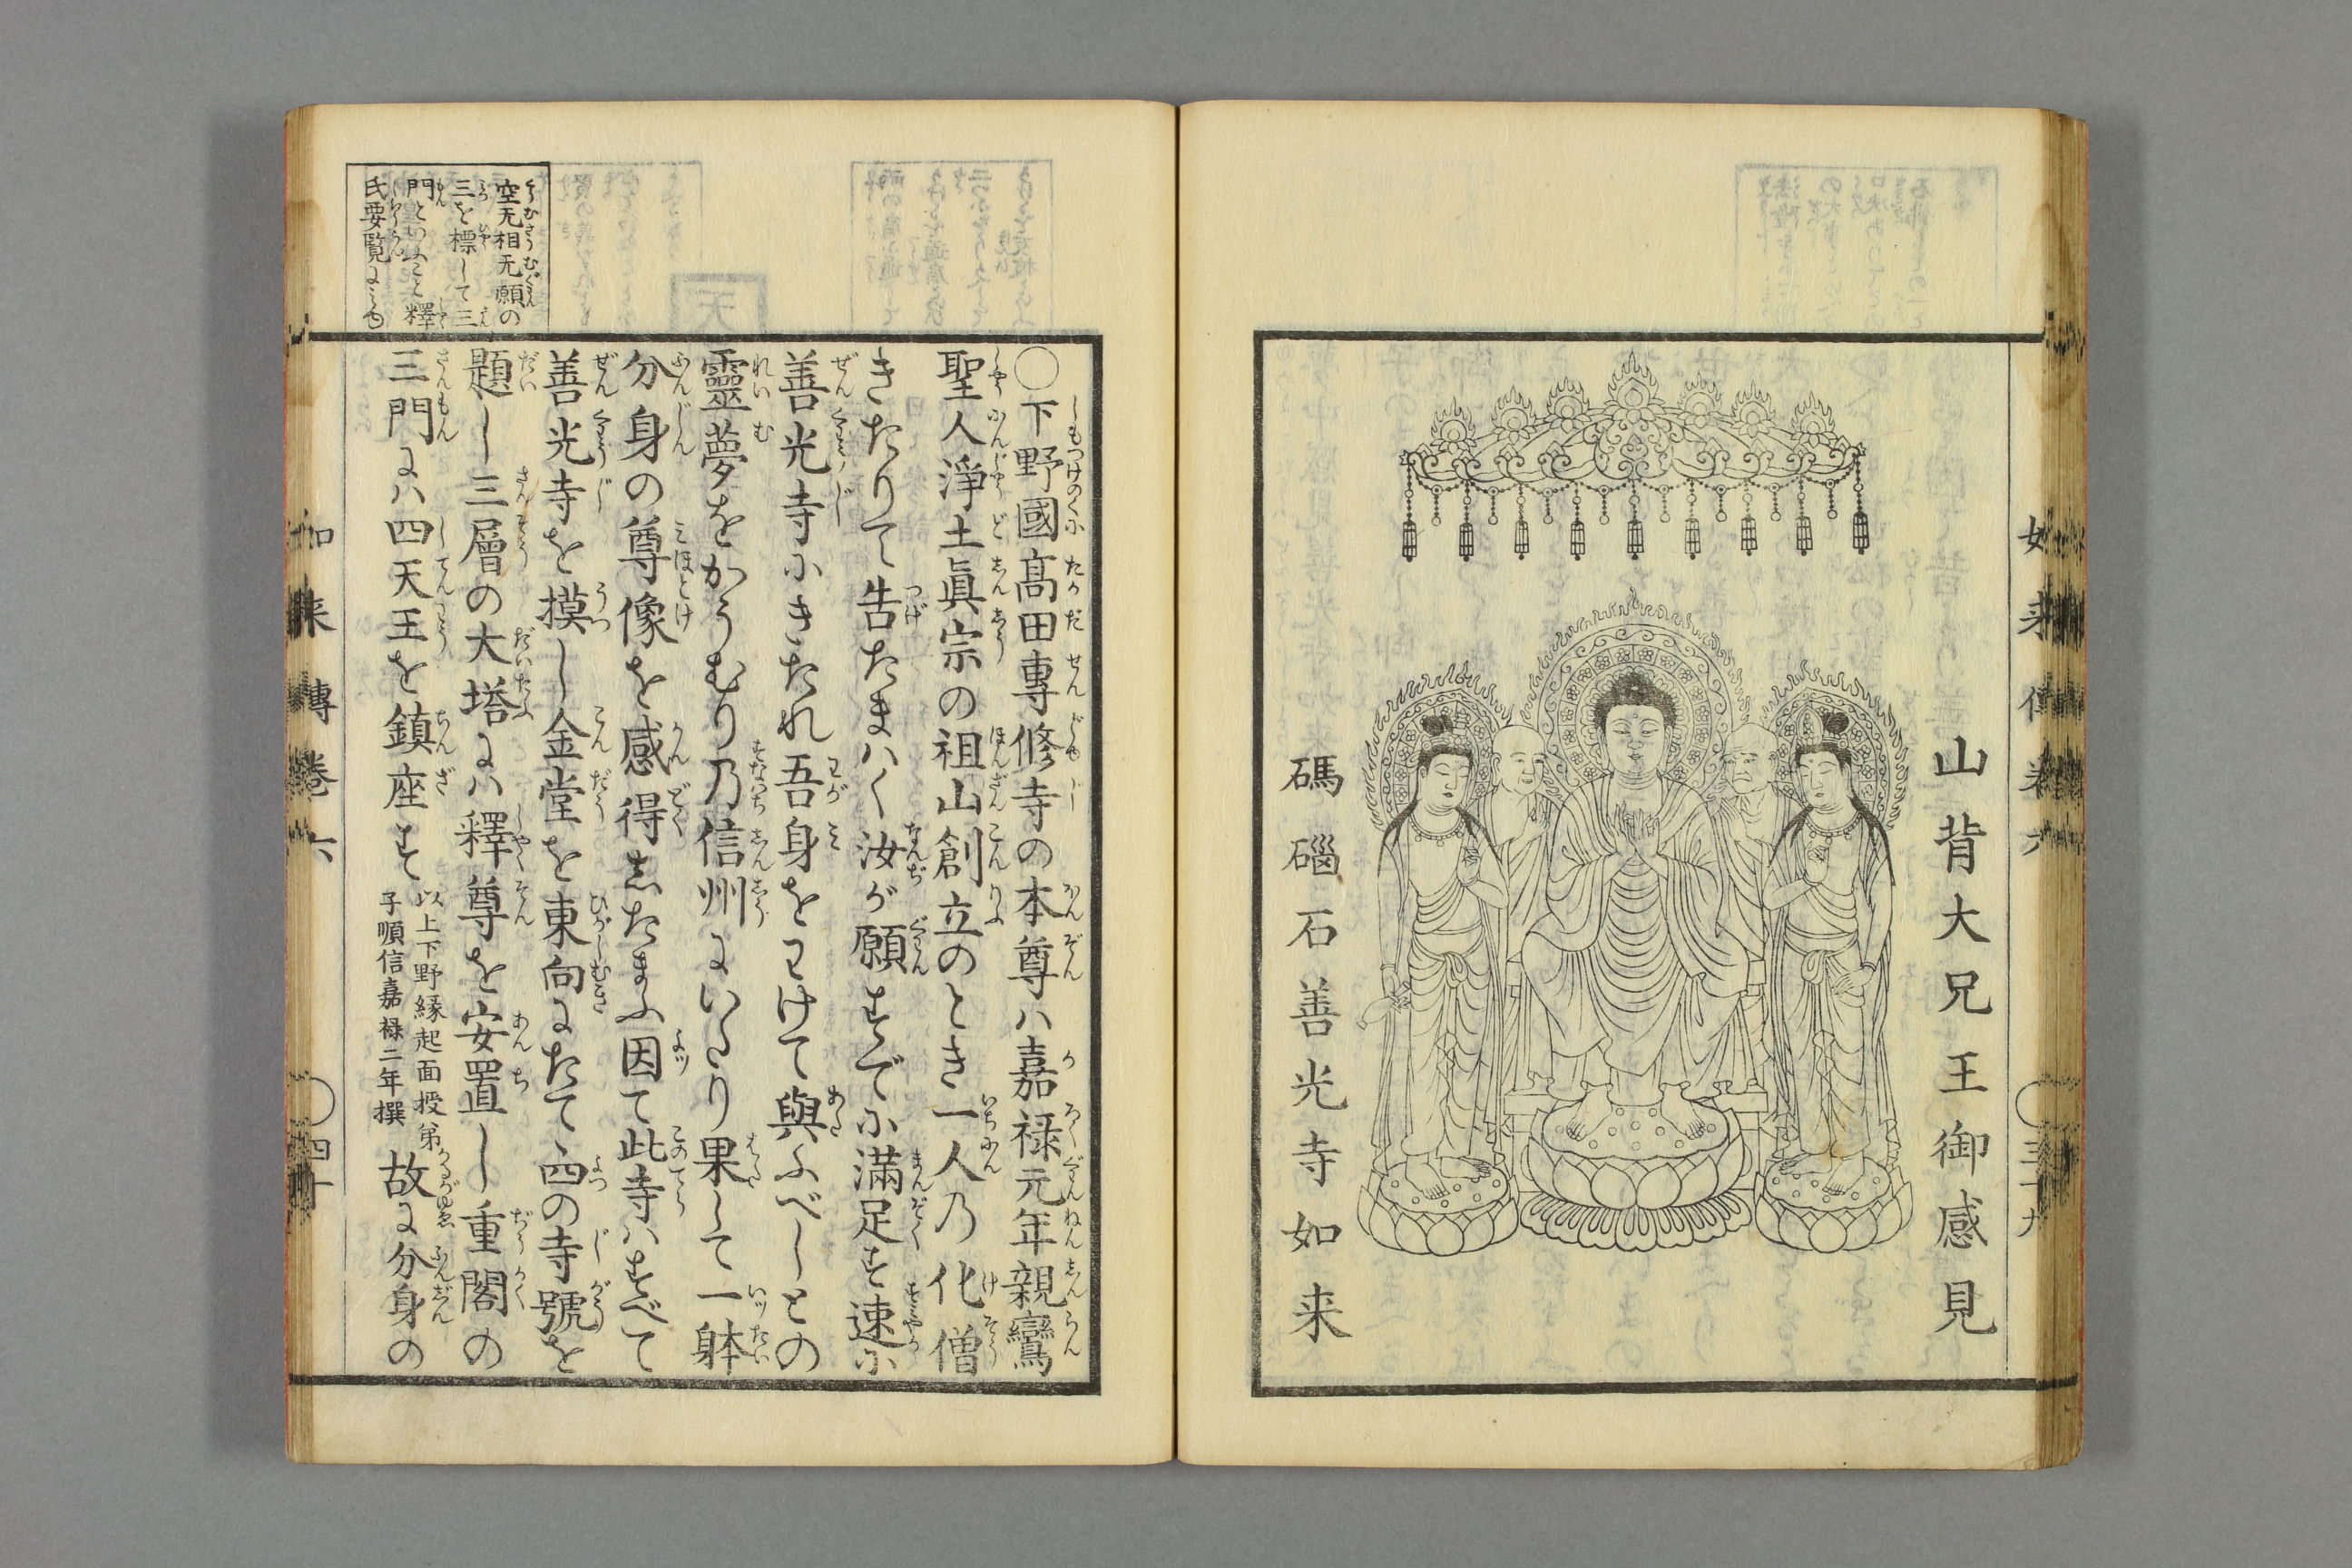 山背大兄王御感見
碼碯石善光寺如来
如来傳巻六
〇三十九
〇下野國髙田專修寺の本尊ハ嘉禄元年親鸞
聖人淨土眞宗の祖山創立のとき一人乃化僧
きたりて告たまハく汝が願すでに滿足す速に
善光寺にきたれ吾身をわけて與ふべしとの
靈夢をかうむり乃信州にいたり果して一躰
分身の尊像を感得したまふ因て此寺ハすべて
善光寺を摸し金堂を東向にたて四の寺號を
題し三層の大塔にハ釋尊を安置し重閣の
三門にハ四天王を鎮座す
以上下野縁起面授弟
子順信嘉禄二年撰
故に分身の
空无相无願の
三を標して三
門といふこと釋
氏要覧にみゆ
如来傳巻六
〇四十